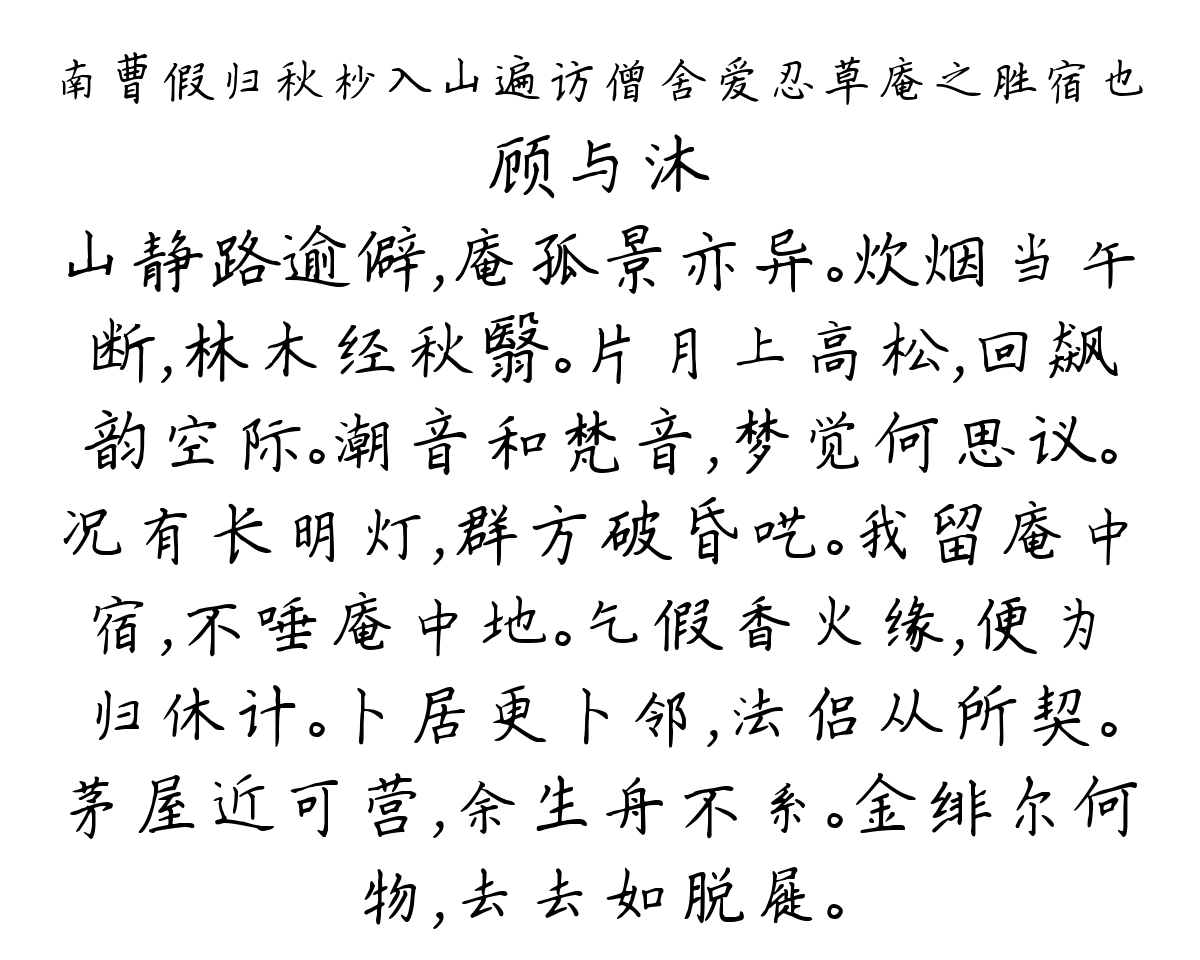 南曹假归秋杪入山遍访僧舍爱忍草庵之胜宿也
顾与沐
山静路逾僻,庵孤景亦异。炊烟当午
断,林木经秋翳。片月上高松,回飙
韵空际。潮音和梵音,梦觉何思议。
况有长明灯,群方破昏呓。我留庵中
宿,不唾庵中地。乞假香火缘,便为
归休计。卜居更卜邻,法侣从所契。
茅屋近可营,余生舟不系。金绯尔何
物,去去如脱屣。